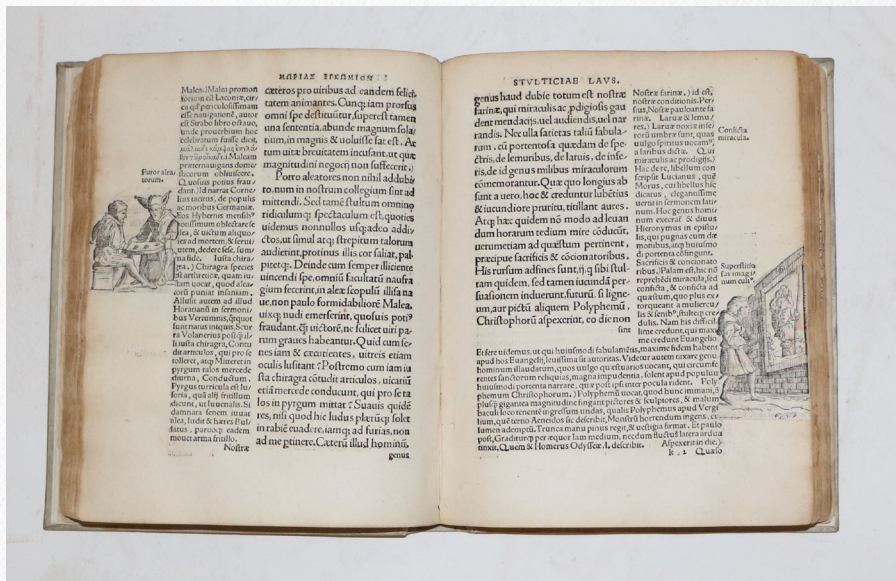 ΜΩΡΙΑΣ ΕΓΚΩΜΙΟΝ
Malea.) Malea promon
torium est Laconiæ, cir/
ca qđ periculosissimam
esse nauigationē, autor
est Strabo libro octauo,
unde prouerbium hoc
celebratum fuisse dicit,
Maleam
præternauigans dome/
sticorum obliuiscere.
Quosuis potius frau/
dant.) Id narrat Corne/
lius tacitus, de populis
ac moribus Germaniæ.
Eos Hybernis mensib⁹
potissimum oblectare se
alea, & iustum aliquo/
ties ad mortem, & serui/
tutem, dedere sese, sum/
ma fide. Iusta chira/
gra.) Chiragra species
est arthreticæ, quam iu/
stam uocat, quod alea/
torū puniat insaniam.
Allusit autem ad illud
Horatianū in sermoni/
bus Vertumnis, qtquot
sunt natus iniquis. Scur
ra Volanerius postq̄ il/
li iusta chiragra, Contu
dit articulos, qui pro se
tolleret, atq; Mitteret in
pyrgum talos mercede
diurna, Conductum.
Pyrgus turricula est lu/
soria, quā alij fritillum
dicunt, ut Iuuenalis. Si
damnosa senem iuuat
alea, ludit & hæres Bul/
latus, paruoq; eadem
mouet arma fritillo.
Nostræ
Furor alea/
torum.
cæteros pro uiribus ad eandem felici/
tatem animantes. Cunq; iam prorsus
omni spe destituūtur, superest tamen
una sententia, abunde magnum sola/
tium, in magnis & uoluisse sat est. Ac
tum uitæ breuitatem incusant, ut quæ
magnitudini negocij non suffecerit.
Porro aleatores non nihil addubi/
to, num in nostrum collegium sint ad
mittendi. Sed tamē stultum omnino
ridiculumq; spectaculum est, quoties
uidemus nonnullos usq; adeo addi/
ctos, ut simul atq; strepitum talorum
audierint, protinus illis cor saliat, pal/
pitetq;. Deinde cum semper illiciente
uincendi spe, omniū facultatū naufra
gium fecerint, in aleæ scopulū illisa na
ue, non paulo formidabiliorē Malea,
uixq; nudi emerserint, quosuis potiꝰ
fraudant, q̄ uictorē, ne scilicet uiri pa/
rum graues habeantur. Quid cum se/
nes iam & cæcutientes, uitreis etiam
oculis lusitant? Postremo cum iam iu
sta chiragra cōtudit articulos, uicariū
etiā mercede conducunt, qui pro se ta
los in pyrgum mittat? Suauis quidē
res, nisi quod hic ludus plærūq; solet
in rabiē euadere, iamq; ad furias, non
ad me ptinere. Cæterū illud hominū,
genus
STVLTICIAE LAVS.
genus haud dubie totum est nostræ
farinæ, qui miraculis ac pdigiosis gau
dent mendacijs, uel audiendis, uel nar
randis. Nec ulla satietas taliū fabula/
rum, cū portentosa quædam de spe/
ctris, de lemuribus, de laruis, de infe/
ris, de id genus milibus miraculorum
cōmemorantur. Quæ quo longius ab
sunt a uero, hoc & creduntur lubētius
& iucundiore pruritu, titillant aures.
Atq; hæc quidem nō modo ad leuan
dum horarum tedium mire cōducūt,
uerumetiam ad quæstum pertinent,
præcipue sacrificis & cōcionatoribus.
His rursum adfines sunt, ij, q sibi stul/
tam quidem, sed tamen iucundā per/
suasionem induerunt, futurū, si ligne/
um, aut pictū aliquem Polyphemū,
Christophorū aspexerint, eo die non
sint
Nostræ farinæ.) id est,
nostræ conditionis. Per/
sius, Nostræ paulo ante fa
rinæ. Laruæ & lemu/
res.) Laruæ noxiæ infe/
rorū umbræ sunt, quas
uulgo spiritus uocamꝰ,
a laribus dictæ. Qui
miraculis ac prodigijs.)
Hac de re, libellum con
scripsit Lucianus, quē
Morus, cui libellus hic
dicatus, elegantissime
uertit in sermonem lati/
num. Hoc genus homi/
num execraf & diuus
Hieronymus in episto/
lis, qui pugnas cum dæ
monibus, atq; huiusmo
di portenta cōfingunt.
Sacrificis & concionato
ribus.) Palam est, hic nō
reprehēdi miracula, sed
conficta, & conficta ad
quæstum, quo plus ex/
torqueant a mulieRcu/
lis & senibꝰ, stulteq; cre/
dulis. Nam his difficil/
lime credunt, qui maxi/
me credunt Euangelio
Conficta
miracula.
Superstitio/
sus imagi/
num cultꝰ.
Et fere uidemus, ut qui huiusmodi fabulamētis, maxime fidem habent
apud hos Euangelij, leuissima sit autoritas. Videtur autem taxare genus
hominum illaudatum, quos uulgo quæstuarios uocant, qui circumfe
rentes sanctorum reliquias, magna impudentia, solent apud populum
huiusmodi portenta narrare, quæ post ipsi inter pocula rident. Poly
phemum Christophorum.) Polyphemū uocat, quod hunc immani, &
plusq̄ gigantea magnitudine fingunt pictores & sculptores, & malum
baculi loco tenentē ingressum undas, qualis Polyphemus apud Vergi
lium, quē tertio Aeneidos sic describit, Monstrū horrendum ingens, cui
lumen ademptū. Trunca manu pinus regit, & uestigia firmat. Et paulo
post, Graditurq; per æquor iam medium, necdum fluctꝰ latera ardua
tinxit. Quem & Homerus Odysseæ .I. describit. Aspexerit in die.)
k 2 Quæso